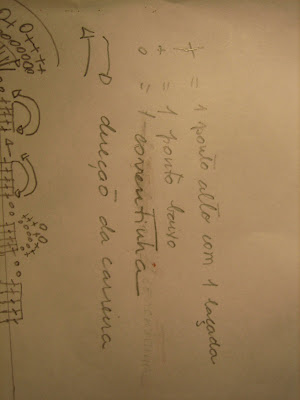 = 1 ponto alto com 1 laçada
+ = 1 ponto baixo
o = 1 correntinha
direção da carreira